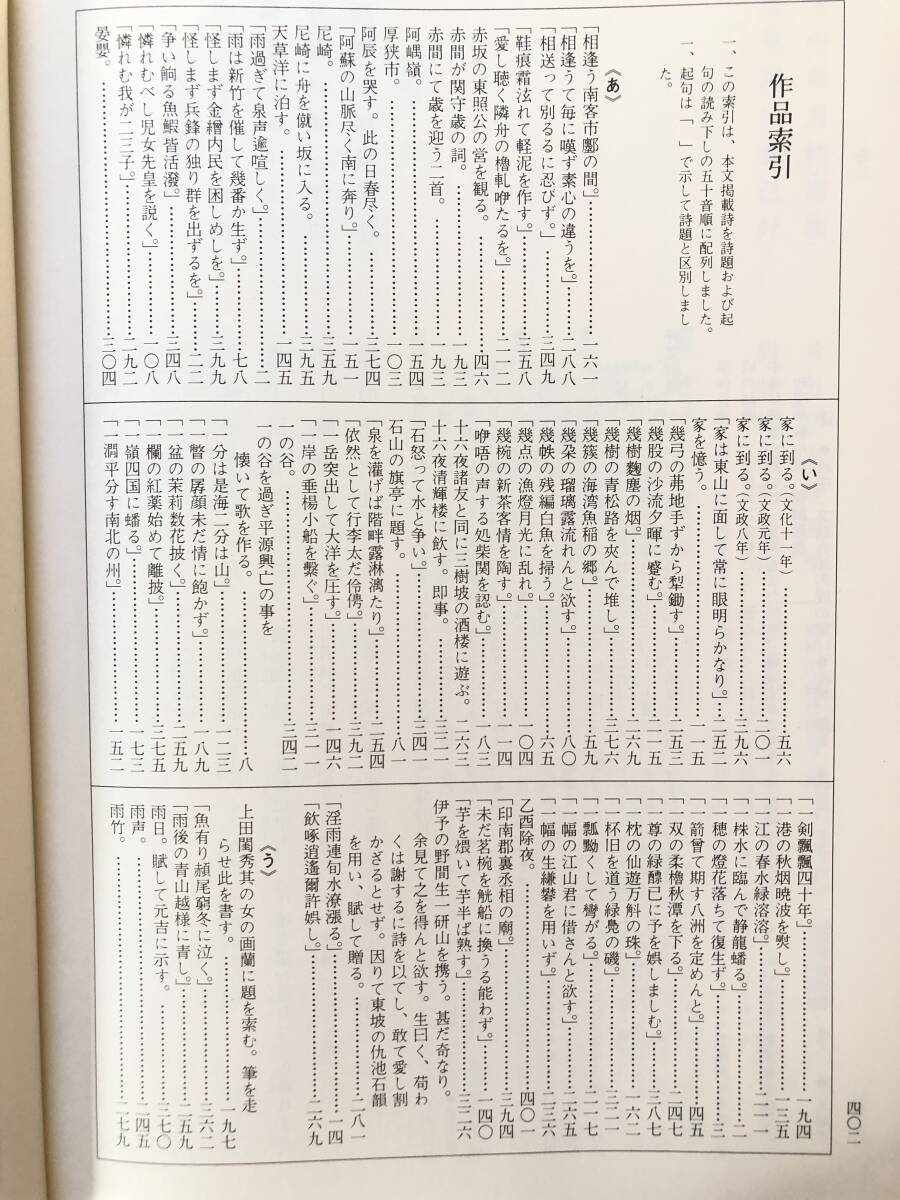 作品索引
一、この索引は、本文掲載詩を詩題および起
句の読み下しの五十音順に配列しました。
一、起句は「 」で示して詩題と区別しまし
た。
《あ》
「相逢う南客市鄽の間。」…………一六一
「相逢うて毎に嘆ず素心の違うを。」…………二八八
「相送って別るるに忍びず。」…………三四九
「鞋痕霜泫れて軽泥を作す。」…………三五八
「愛し聴く隣舟の櫓軋咿たるを。」…………二一二
赤坂の東照公の営を観る。…………四六
赤間が関守歳の詞。…………一九三
赤間にて歳を迎う二首。…………一九三
阿嵎嶺。…………一五四
厚狭市。…………一〇三
阿辰を哭す。此の日春尽く。…………三七四
「阿蘇の山脈尽く南に奔り。」…………一五一
尼崎。…………三五九
尼崎に舟を僦い坂に入る。…………三九五
天草洋に泊す。…………一四五
「雨過ぎて泉声遽喧しく。」…………二
「雨は新竹を催して幾番か生ず。」…………七八
「怪しまず金繒内民を困しめしを。」…………三九九
「怪しまず兵鋒の独り群を出ずるを。」…………二二
「争い餉る魚鰕皆活潑。」…………三四八
「憐れむべし児女先皇を説く。」…………一〇八
「憐れむ我が二三子。」…………二九二
晏嬰。…………三〇四
《い》
家に到る。(文化十一年)…………五六
家に到る。(文政元年)…………二〇一
家に到る。(文政八年)…………三九六
「家は東山に面して常に眼明らかなり。」…………二五二
家を憶う。…………一一五
「幾弓の茀地手ずから犁鋤す。」…………二五三
「幾股の沙流夕暉に蹙む。」…………二一五
「幾樹麹塵の烟。」…………二六九
「幾樹の青松路を夾んで堆し。」…………三七六
「幾簇の海湾魚稲の郷。」…………五九
「幾朶の瑠璃露流れんと欲す。」…………八〇
「幾帙の残編白魚を掃う。」…………六五
「幾点の漁燈月光に乱れ。」…………一〇四
「幾椀の新茶客情を陶す。」…………一一四
「咿唔の声する処柴関を認む。」…………一八三
十六夜諸友と同に三樹坡の酒楼に遊ぶ。二六三
十六夜清輝楼に飲す。即事。…………三二一
「石怒って水と争い。」…………三四一
石山の旗亭に題す。…………八一
「泉を灌げば階畔露淋漓たり。」…………二五四
「依然として行李太だ伶俜。」…………三九二
「一岳突出して大洋を圧す。」…………一四六
「一岸の垂楊小船を繫ぐ。」…………三一一
一の谷。…………三四二
一の谷を過ぎ平源興亡の事を
懐いて歌を作る。…………八
「一分は是海二分は山。」…………一二三
「一瞥の孱顔未だ情に飽かず。」…………一八九
「一盆の茉莉数花披く。」…………二五九
「一欄の紅薬始めて離披。」…………三七五
「一嶺四国に蟠る。」…………一七三
「一澗平分す南北の州。」…………一五二
「一剣飄飄四十年。」…………一九四
「一港の秋烟暁波を熨し。」…………一三五
「一江の春水緑溶溶。」…………二一一
「一株水に臨んで静龍蟠る。」…………二
「一穂の燈花落ちて復生ず。」…………三
「一箭曾て期す八洲を定めんと。」…………四五
「一双の柔櫓秋潭を下る。」…………二四七
「一尊の緑醽已に予を娯しましむ。」…………三八七
「一枕の仙遊万斛の珠。」…………一六二
「一杯旧を道う緑鳧の磯。」…………三二一
「一瓢黝くして彎がる。」…………二一七
「一幅の江山君に借さんと欲す。」…………二六五
「一幅の生縑攀を用いず。」…………二三六
乙酉除夜。…………四〇一
「印南郡裏丞相の廟。」…………三九四
「未だ茗椀を觥船に換うる能わず。」…………一四〇
「芋を煨いて芋半ば熟す。」…………三二六
伊予の野間生一研山を携う。甚だ奇なり。
余見て之を得んと欲す。生曰く、苟わ
くは謝するに詩を以てし、敢て愛し割
かざるとせず。因りて東坡の仇池石韻
を用い、賦して贈る。…………二八一
「淫雨連旬水潦漲る。」…………一四
「飲啄逍遙爾許娯し。」…………二六九
《う》
上田閨秀其の女の画蘭に題を索む。筆を走
らせ此を書す。…………一九七
「魚有り頳尾窮冬に泣く。」…………三六二
「雨後の青山越様に青し。」…………二五九
雨日。賦して元吉に示す。…………三七〇
雨声。…………二四五
雨竹。…………二七九
四〇二